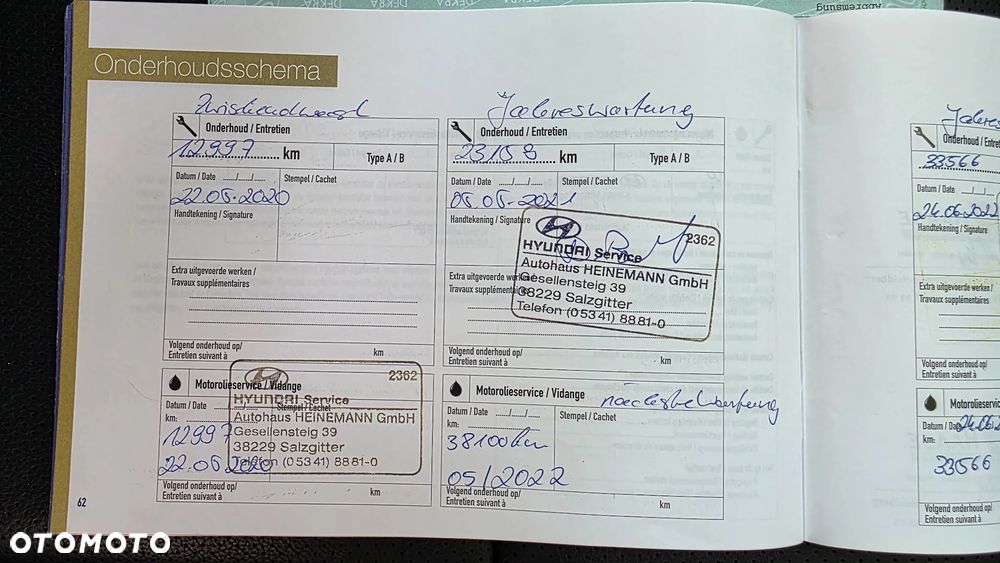 DEKRA
DEKRA
DEKRA
Abbremsung
Onderhoudsschema
Jahreswartung
Onderhoud / Entretien
12997 km
Type A / B
Datum / Date ..../..../....
Stempel / Cachet
22.05.2020
Handtekening / Signature
Extra uitgevoerde werken /
Travaux supplémentaires
Volgend onderhoud op/
Entretien suivant à
km
Onderhoud / Entretien
23108 km
Type A / B
Datum / Date ..../..../....
Stempel / Cachet
05.05.2021
Handtekening / Signature
2362
HYUNDAI Service
Autohaus HEINEMANN GmbH
Gesellensteig 39
38229 Salzgitter
Telefon (05341) 8881-0
Extra uitgevoerde werken /
Travaux supplémentaires
Volgend onderhoud op/
Entretien suivant à
km
Motorolieservice / Vidange
Datum / Date
Stempel / Cachet
km:
12997
22.05.2020
2362
HYUNDAI Service
Autohaus HEINEMANN GmbH
Gesellensteig 39
38229 Salzgitter
Telefon (05341) 8881-0
Volgend onderhoud op/
Entretien suivant à
km
Motorolieservice / Vidange
Datum / Date ..../..../....
Stempel / Cachet
km:
38100 km
05/2022
Volgend onderhoud op/
Entretien suivant à
km
62
Jahres
Onderhoud / Entret
33566
Datum / Date ..../..../....
24.06.2022
Handtekening / Signature
Extra uitgevoerde werken /
Travaux supplémentaires
Volgend onderhoud op/
Entretien suivant à
Motorolieservic
Datum / Dat
24.06.2
km:
33566
Volgend onderhoud op/
Entretien suivant à
OTOMOTO